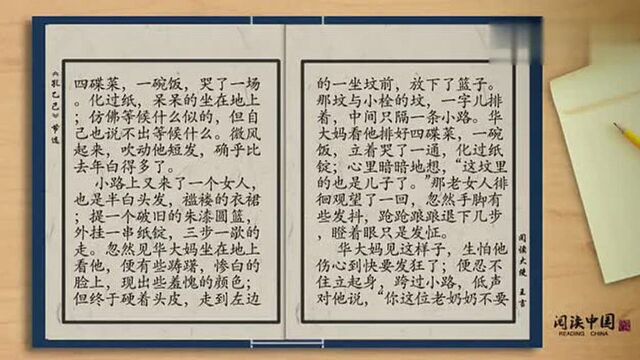 《孔乙己》节选
四碟菜，一碗饭，哭了一场
。化过纸，呆呆的坐在地上
；仿佛等候什么似的，但自
己也说不出等候什么。微风
起来，吹动他短发，确乎比
去年白得多了。
小路上又来了一个女人，
也是半白头发，褴褛的衣裙
；提一个破旧的朱漆圆篮，
外挂一串纸锭，三步一歇的
走。忽然见华大妈坐在地上
看他，便有些踌躇，惨白的
脸上，现出些羞愧的颜色；
但终于硬着头皮，走到左边
的一坐坟前，放下了篮子。
那坟与小栓的坟，一字儿排
着，中间只隔一条小路。华
大妈看他排好四碟菜，一碗
饭，立着哭了一通，化过纸
锭；心里暗暗地想，“这坟里
的也是儿子了。”那老女人徘
徊观望了一回，忽然手脚有
些发抖，跄跄踉踉退下几步
，瞪着眼只是发怔。
华大妈见这样子，生怕他
伤心到快要发狂了；便忍不
住立起身，跨过小路，低声
对他说，“你这位老奶奶不要
阅读大使 王言
阅读中国
READING CHINA